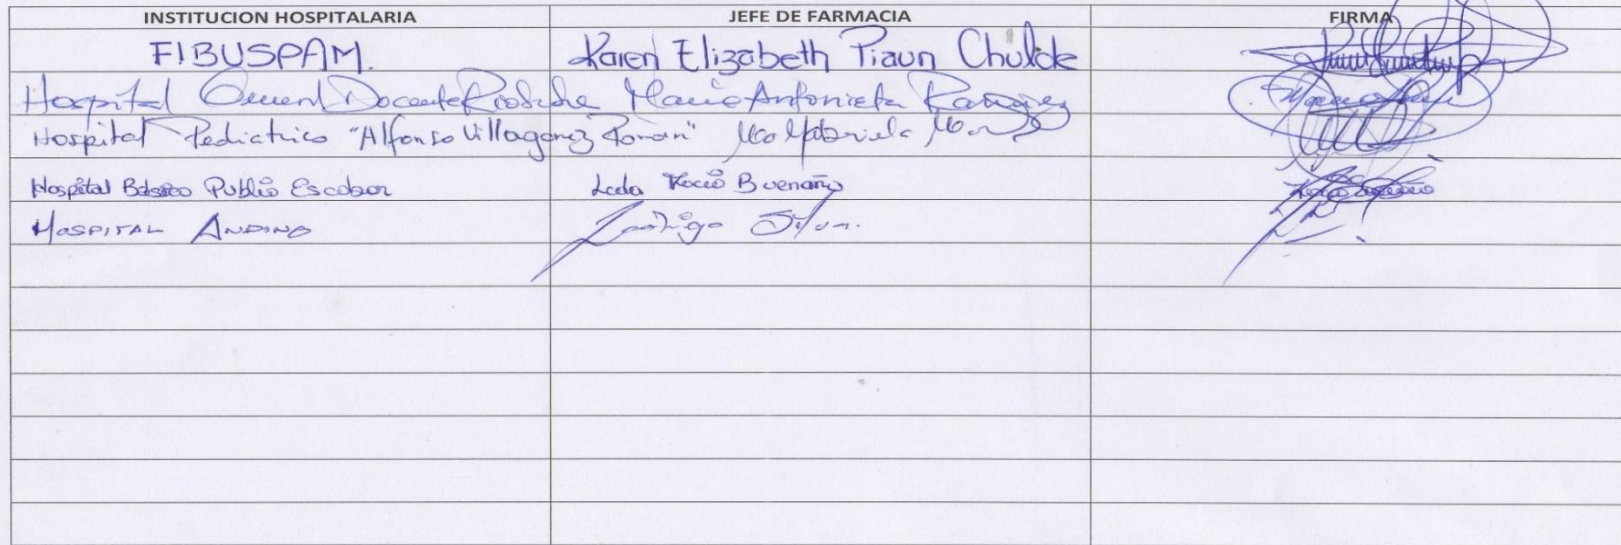 INSTITUCION HOSPITALARIA JEFE DE FARMACIA FIRMA
FIBUSPAM. Karen Elizabeth
Hospital Docente Maria Antonieta
Hospital Pediatrico "Alfonso Villagomez Roman" Gabriela
Hospital Básico Publio Escobar Lcda Rocío Buenaño
HOSPITAL ANDINO Rodrigo Silva.